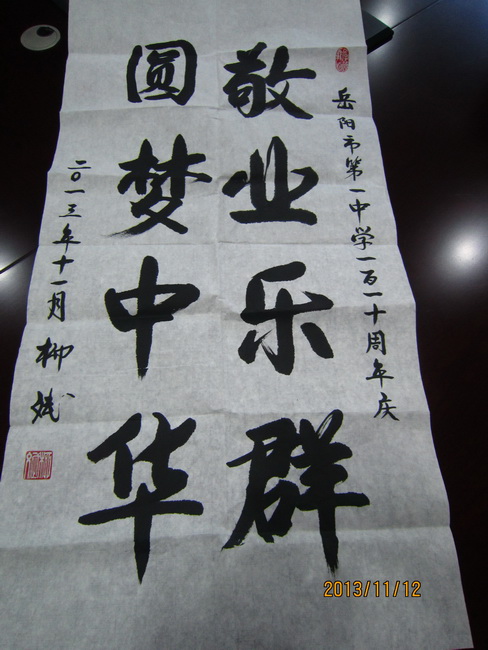 岳阳市第一中学一百一十周年庆
敬业乐群
圆梦中华
二〇一三年十一月 柳斌
2013/11/12